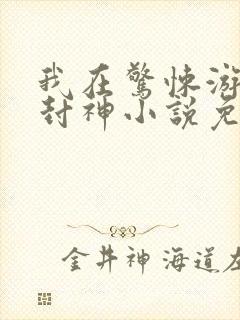 我在驚悚游
封神小說免
金井神海道左